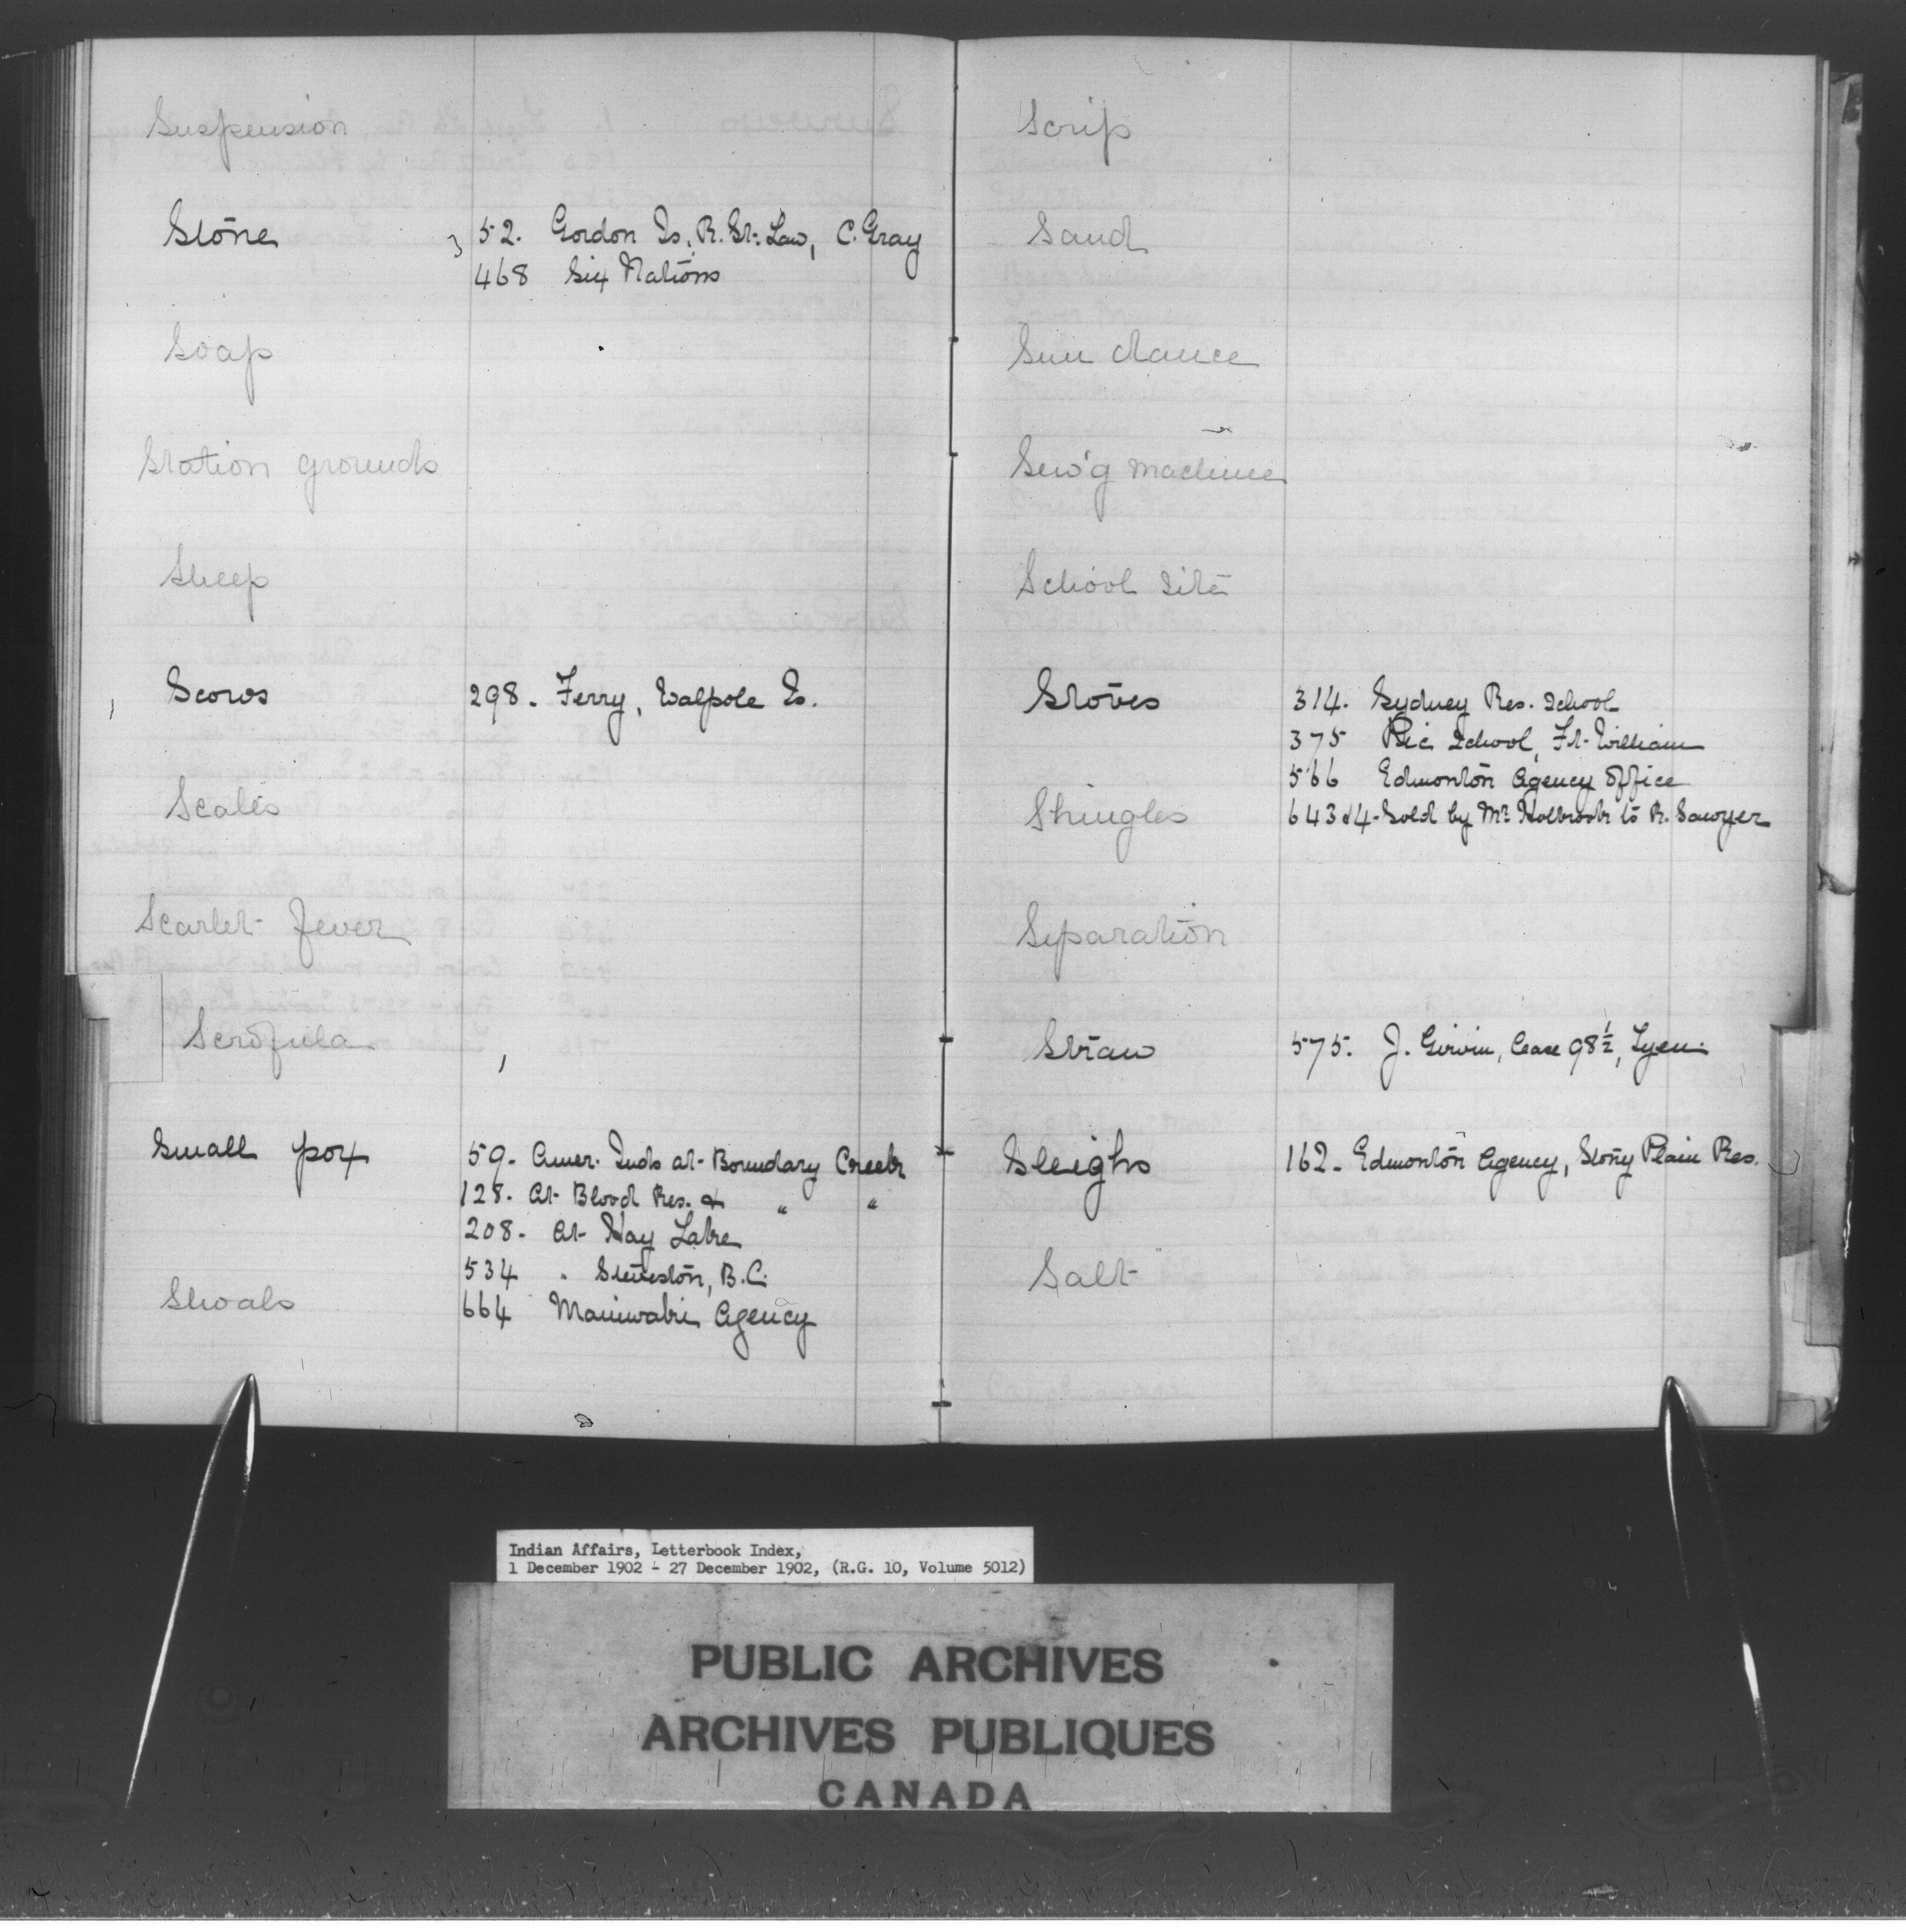 Suspension
Stone 52. Gordon Is, R. St. Law, C. Gray
468 Six Nations
Soap
Station grounds
Sheep
Scows 298. Ferry, Walpole Is.
Scales
Scarlet fever
Scrofula
Small pox 59. Amer. Inds at Boundary Creek
128. At Blood Res. & " "
208. At Hay Lake
534 " Steveston, B.C.
Shoals
664 Maniwaki Agency
Scrip
Sand
Sun dance
Sew'g machine
School site
Stoves 314. Sydney Res. School
375 Pic School, Ft. William
566 Edmonton Agency Office
Shingles 643 & 4 - Sold by Mr. Holbrook to R. Sawyer
Separation
Straw 575. J. Girvin, Lease 98½, Tyen.
Sleighs 162. Edmonton Agency, Stony Plain Res.
Salt
Indian Affairs, Letterbook Index,
1 December 1902 - 27 December 1902, (R.G. 10, Volume 5012)
PUBLIC ARCHIVES
ARCHIVES PUBLIQUES
CANADA